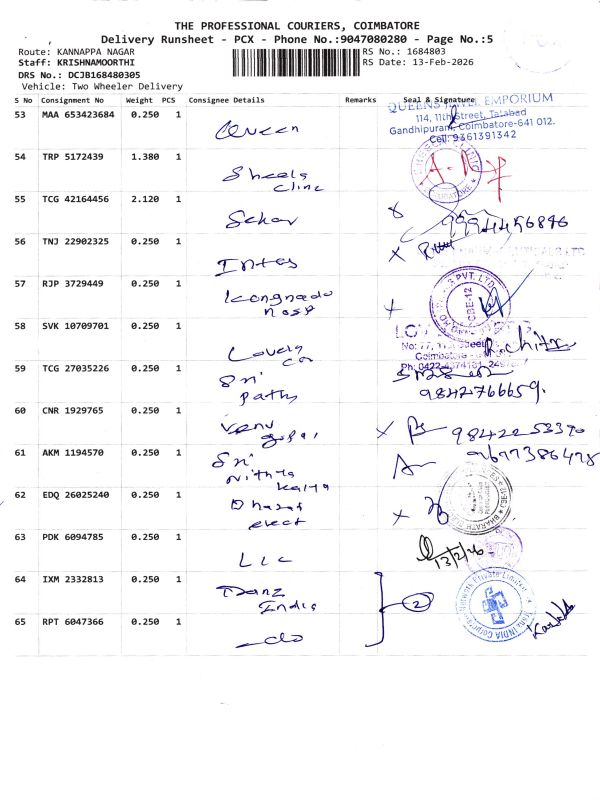 THE PROFESSIONAL COURIERS, COIMBATORE
Delivery Runsheet - PCX - Phone No.:9047080280 - Page No.:5
Route: KANNAPPA NAGAR RS No.: 1684803
Staff: KRISHNAMOORTHI RS Date: 13-Feb-2026
DRS No.: DCJB168480305
Vehicle: Two Wheeler Delivery
S No Consignment No Weight PCS Consignee Details Remarks Seal & Signature
53 MAA 653423684 0.250 1
Queen
EMPORIUM
114, 11th Street, Tatabad
Gandhipuram, Coimbatore-641 012.
Cell: 9361391342
54 TRP 5172439 1.380 1
Sheela
Clinic
55 TCG 42164456 2.120 1
Sekar
9994456846
56 TNJ 22902325 0.250 1
Intas
57 RJP 3729449 0.250 1
PVT. LTD
CBE-12
58 SVK 10709701 0.250 1
Lovely
Co
No: 77, 11th Street
Coimbatore
59 TCG 27035226 0.250 1
Sri
Pathy
9842766659.
60 CNR 1929765 0.250 1
Venu
gopal
9842253370
61 AKM 1194570 0.250 1
Sri
Nithya
Kalya
9677386478
62 EDQ 26025240 0.250 1
Dharat
elect
BHARATH
63 PDK 6094785 0.250 1
LIC
13/2/26
64 IXM 2332813 0.250 1
Danz
India
2
65 RPT 6047366 0.250 1
do